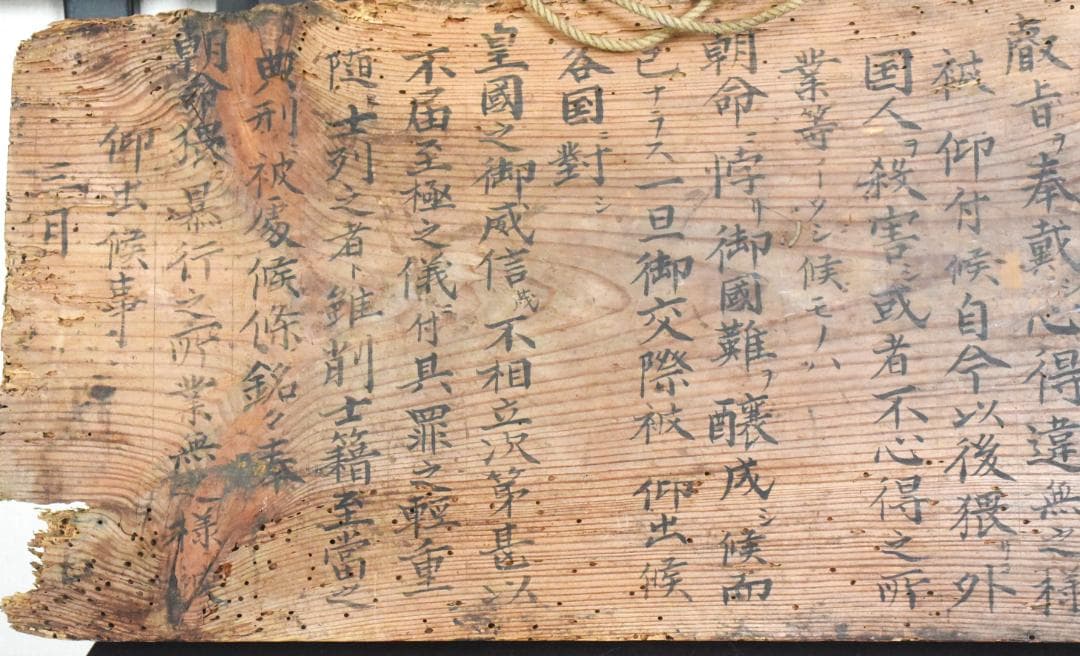 叡旨ヲ奉戴シ心得違無之様
被 仰付候自今以後猥リニ外
国人ヲ殺害シ或者不心得之所
業等イツシ候モノハ
朝命ニ悖リ御國難ヲ醸成シ候而
已ナラス一旦御交際被 仰出候
各国ニ對シ
皇國之御威信茂不相立次第甚以
不届至極之儀ニ付具罪之輕重
随ヒ士列之者ト雖削士籍至當之
典刑被處候條銘々奉
朝命猥 暴行之所業無 様
仰出候事
三月